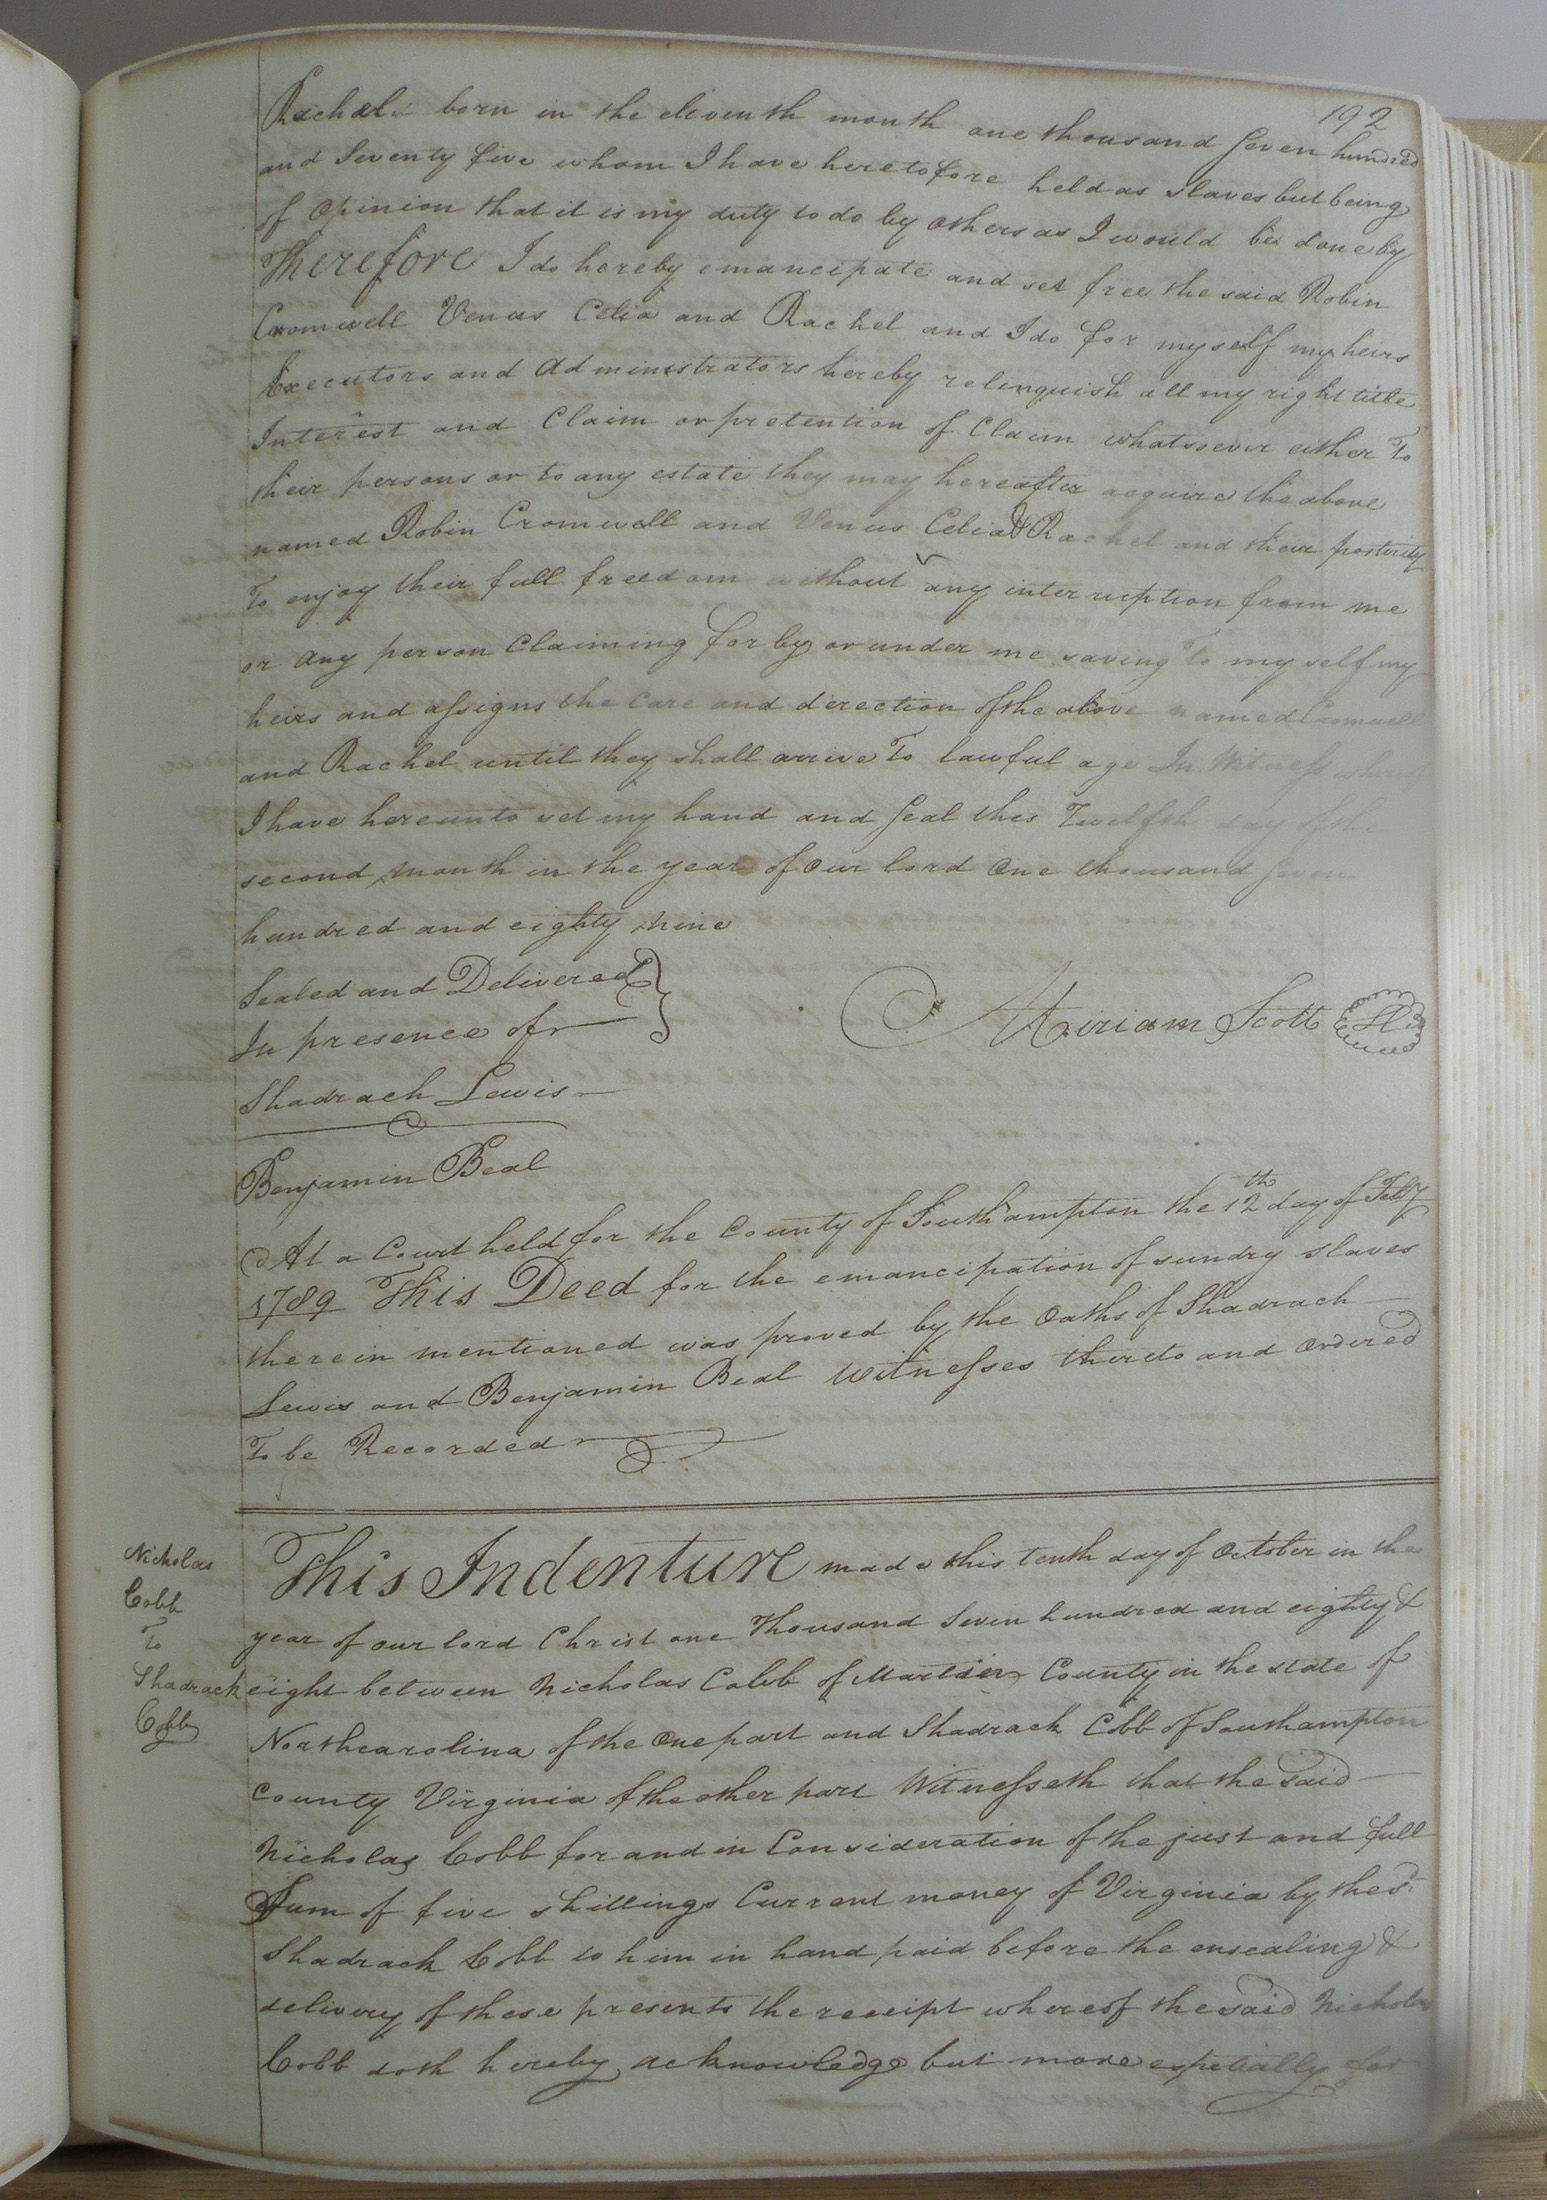 192
Rachel born in the eleventh month one thousand seven hundred
and seventy five whom I have heretofore held as slaves but being
of Opinion that it is my duty to do by others as I would be done by
Therefore I do hereby emancipate and set free the said Robin
Cromwell Venus Celia and Rachel and I do for myself my heirs
Executors and Administrators hereby relinquish all my right title
Interest and Claim or pretention of Claim whatsoever either To
their persons or to any estate they may hereafter acquire the above
named Robin Cromwell and Venus Celia & Rachel and their posterity
To enjoy their full freedom without any interruption from me
or any person Claiming for by or under me saving To my self my
heirs and assigns the Care and direction of the above named Cromwell
and Rachel until they shall arrive To lawful age In Witness
I have hereunto set my hand and seal this Twelfth day of the
second month in the year of our lord One thousand seven
hundred and eighty nine
Sealed and Delivered
In presence of
Miriam Scott
Shadrach Lewis
Benjamin Beal
At a Court held for the County of Southampton the 12th day of Feby
1789 This Deed for the emancipation of sundry slaves
therein mentioned was proved by the Oaths of Shadrach
Lewis and Benjamin Beal Witnesses thereto and Ordered
To be Recorded
Nicholas
Cobb
To
Shadrack
Cobb
This Indenture made this tenth day of October in the
year of our lord Christ one Thousand Seven hundred and eighty &
eight between Nicholas Cobb of Martin County in the state of
Northcarolina of the One part and Shadrack Cobb of Southampton
County Virginia of the other part Witnesseth that the said
Nicholas Cobb for and in Consideration of the just and full
Sum of five shillings Current money of Virginia by the sd.
Shadrack Cobb to him in hand paid before the ensealing &
delivery of these presents the receipt whereof the said Nicholas
Cobb doth hereby acknowledge but more espetially for